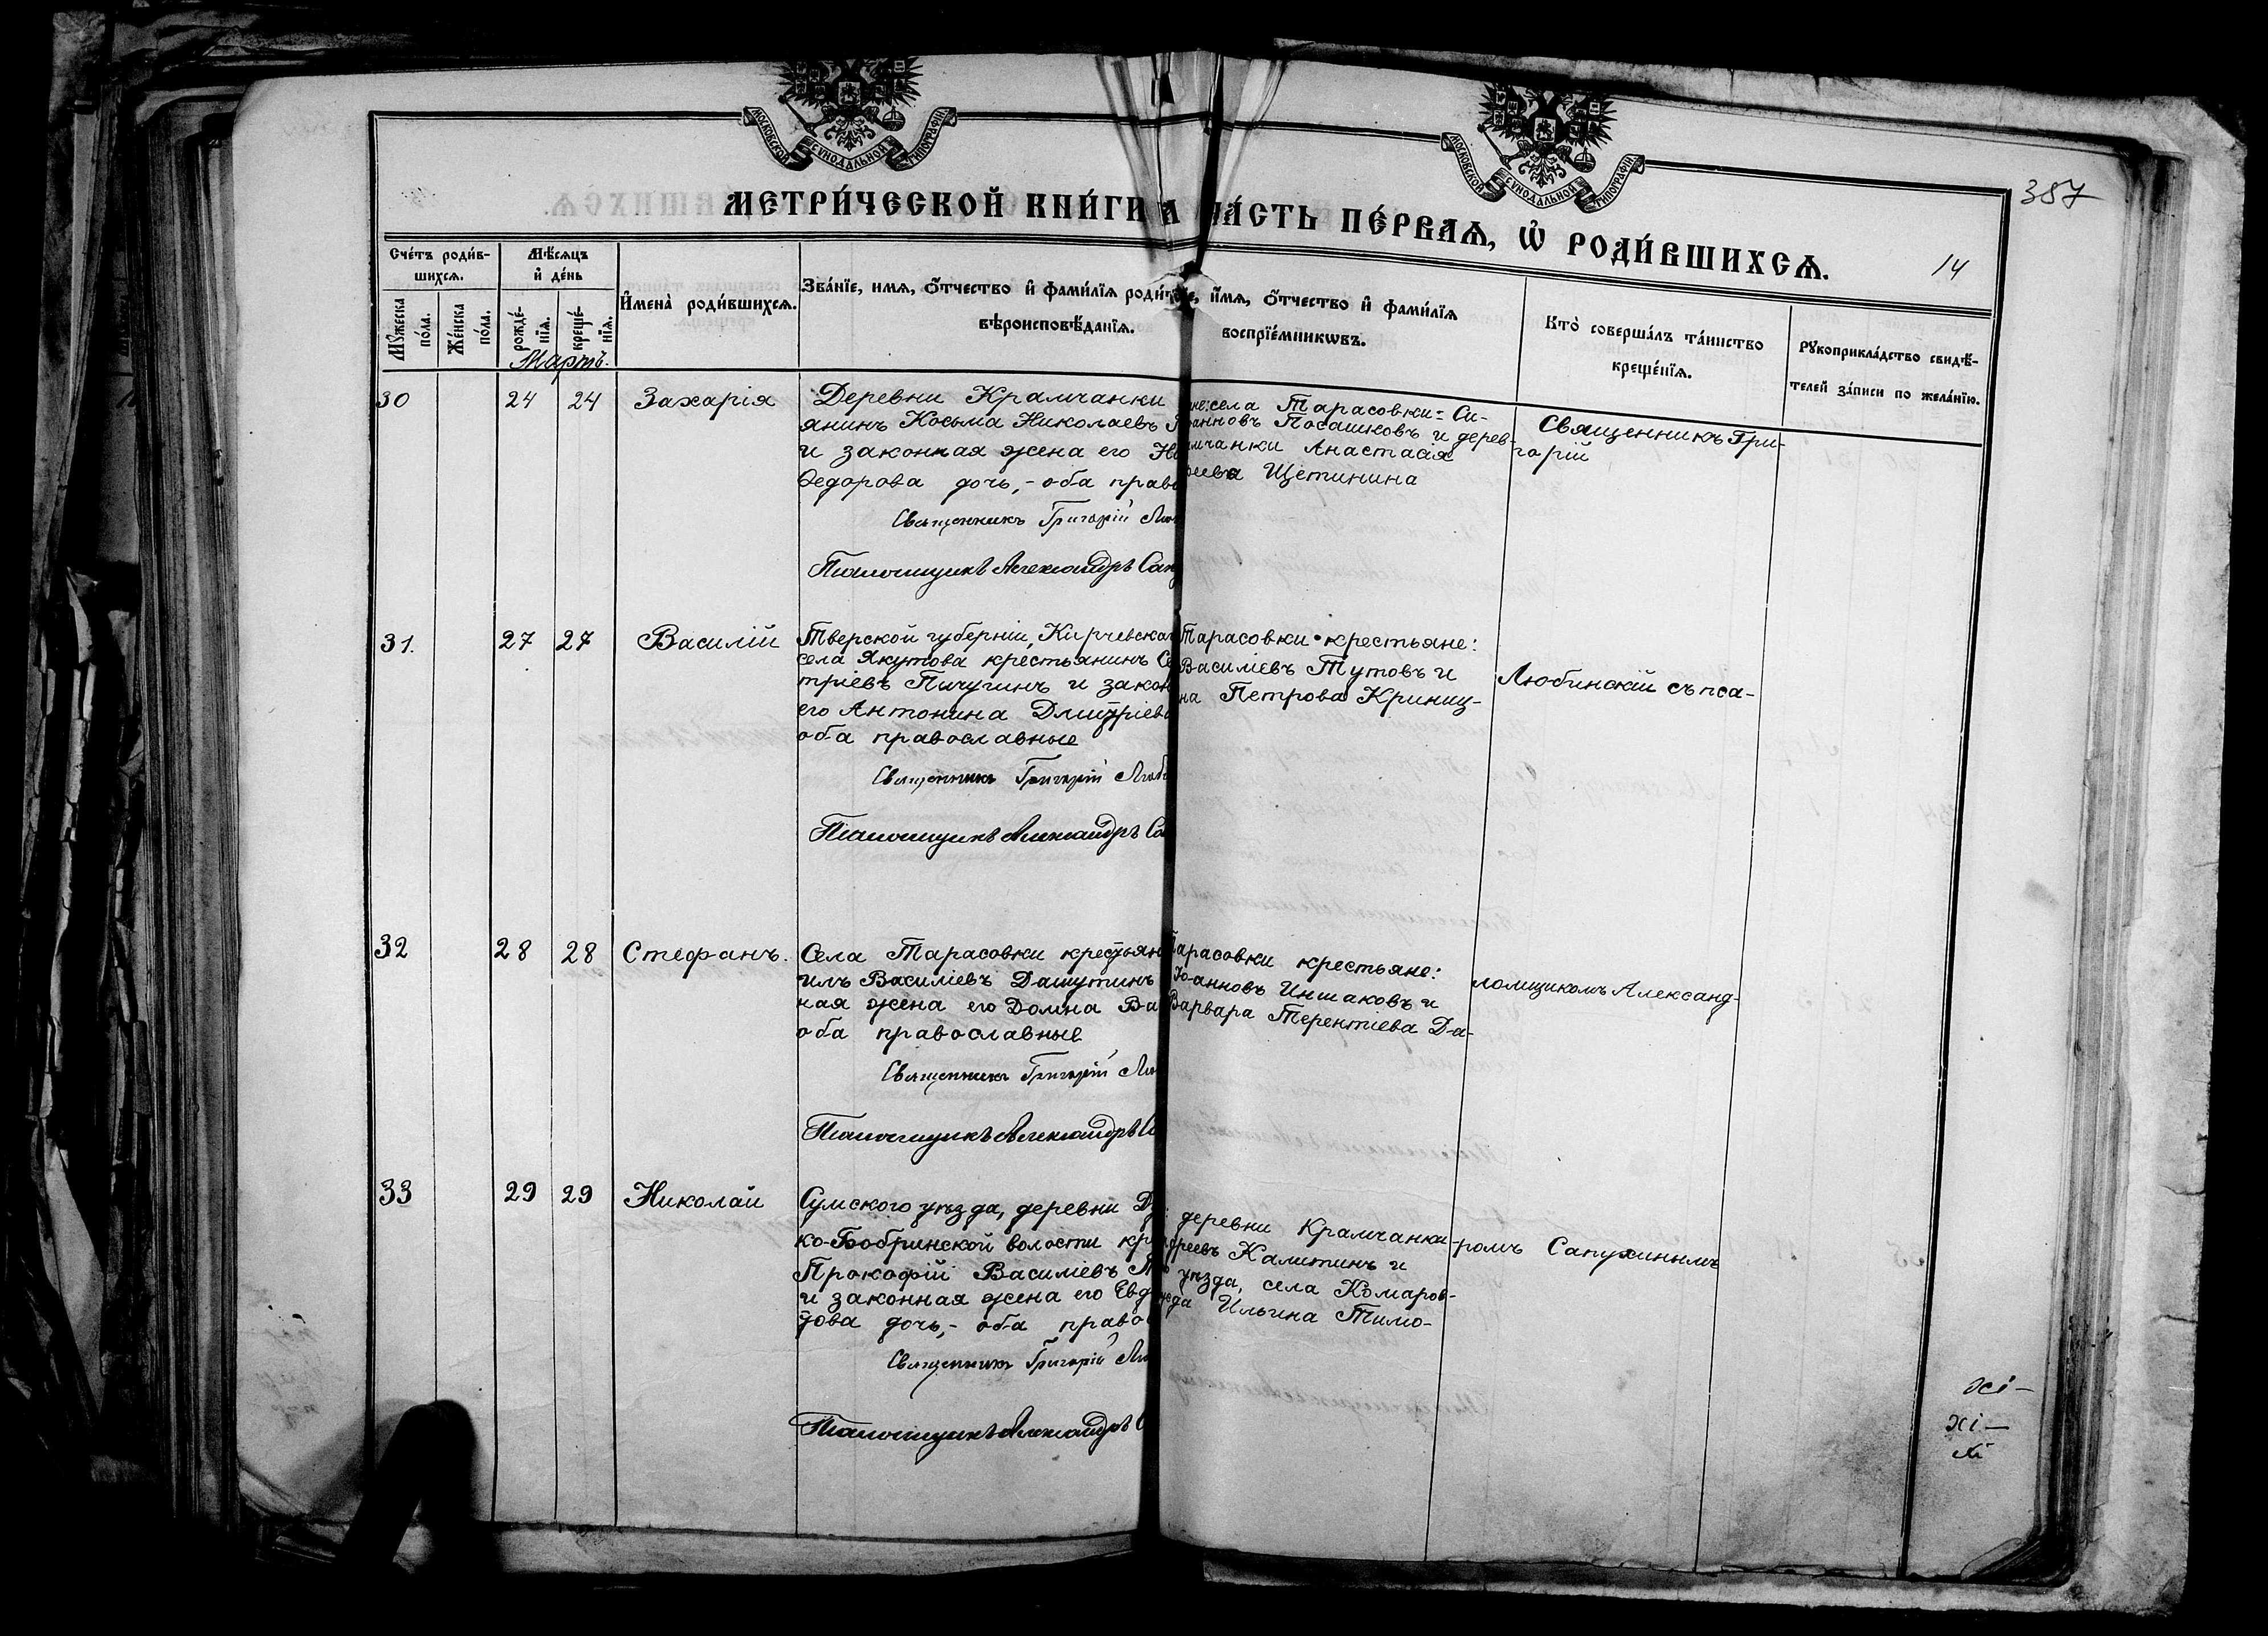 МОСКОВСКОЙ СѴНОДАЛЬНОЙ ТИПОГРАФІИ
МОСКОВСКОЙ СѴНОДАЛЬНОЙ ТИПОГРАФІИ
387
МЕТРИ́ЧЕСКОЙ КНИ́ГИ ЧА́СТЬ ПЕ́РВАѦ, Ѡ҆ РОДИ́ВШИХСѦ.
14
Сче́тъ роди́в-
шихсѧ.
Мꙋ́жеска по́ла.
Же́нска по́ла.
Мѣ́сѧцъ
и҆ де́нь
рожде́-
нїѧ.
креще́-
нїѧ.
Мартъ.
И҆мена̀ роди́вшихсѧ.
Зва́нїе, имѧ, о҆́тчество и҆ фами́лїѧ роди́т
вѣроисповѣ́данїѧ.
и҆́мѧ, о҆́тчество и҆ фами́лїѧ
воспрїе́мникѡвъ.
Кто̀ соверша́лъ та́инство
креще́нїѧ.
Рꙋкоприкла́дство свидѣ́-
телей за́писи по жела́нїю.
30
24 24
Захарія
Деревни Крамчанки
янинъ Косьма Николаевъ
и законная жена его
Ѳедорова дочь,- оба право
Священникъ Григорій
Псаломщикъ Александръ
села Тарасовки: Си-
анновъ Посашковъ и дерев-
мчанки Анастасія
Щетинина
Священникъ Гри-
горій
31.
27 27
Василій
Тверской губерніи,
села Якутова крестьянинъ
тріевъ Пичугинъ и закон
его Антонина Дмитріева
оба православные
Священникъ Григорій Люб
Псаломщикъ Александръ
Тарасовки крестьяне:
Василіевъ Тутовъ и
на Петрова Криниц-
Любинскій съ пса-
32
28 28
Стефанъ.
Села Тарасовки крестьян
илъ Василіевъ Дашутинъ
ная жена его Домна Ва
оба православные
Священникъ Григорій
Псаломщикъ Александръ
Тарасовки крестьяне:
Іоанновъ Иншаковъ и
Варвара Терентіева Да-
ломщикомъ Александ-
33
29 29
Николай
Сумского уѣзда, деревни
ко-Бобринской волости кр
Прокофій Василіевъ
и законная жена его Евд
това дочь,- оба право
Священникъ Григорій
Псаломщикъ Александръ
деревни Крамчанки
дреевъ Калитинъ и
уѣзда, села Комаров-
жда Ильина Тимо-
ромъ Сапухинымъ